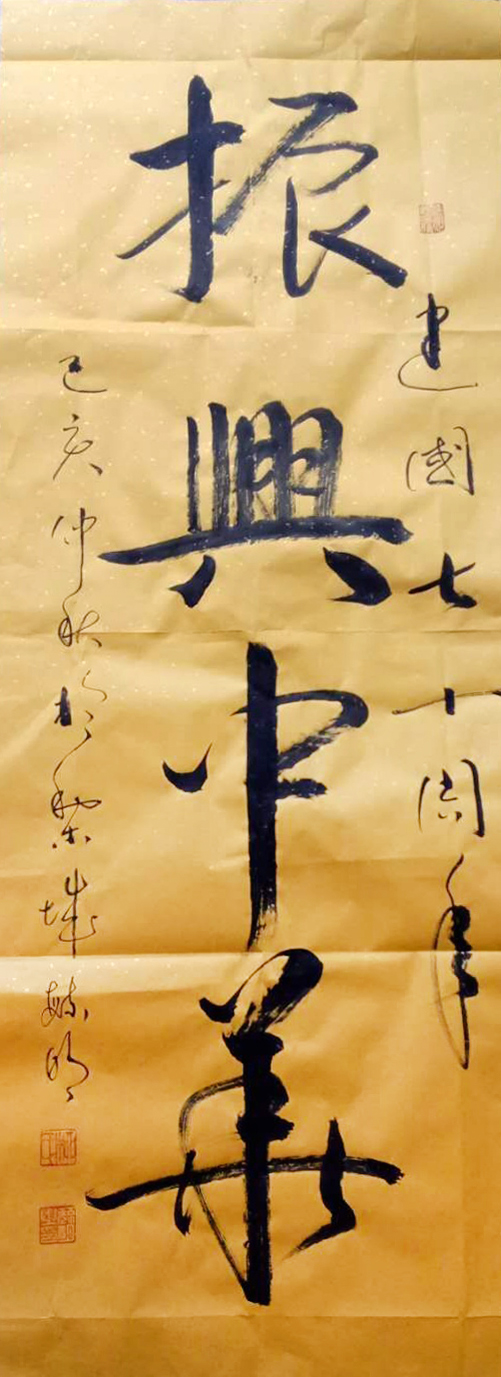 建國七十周年
振興中華
己亥仲秋於黎城毓明